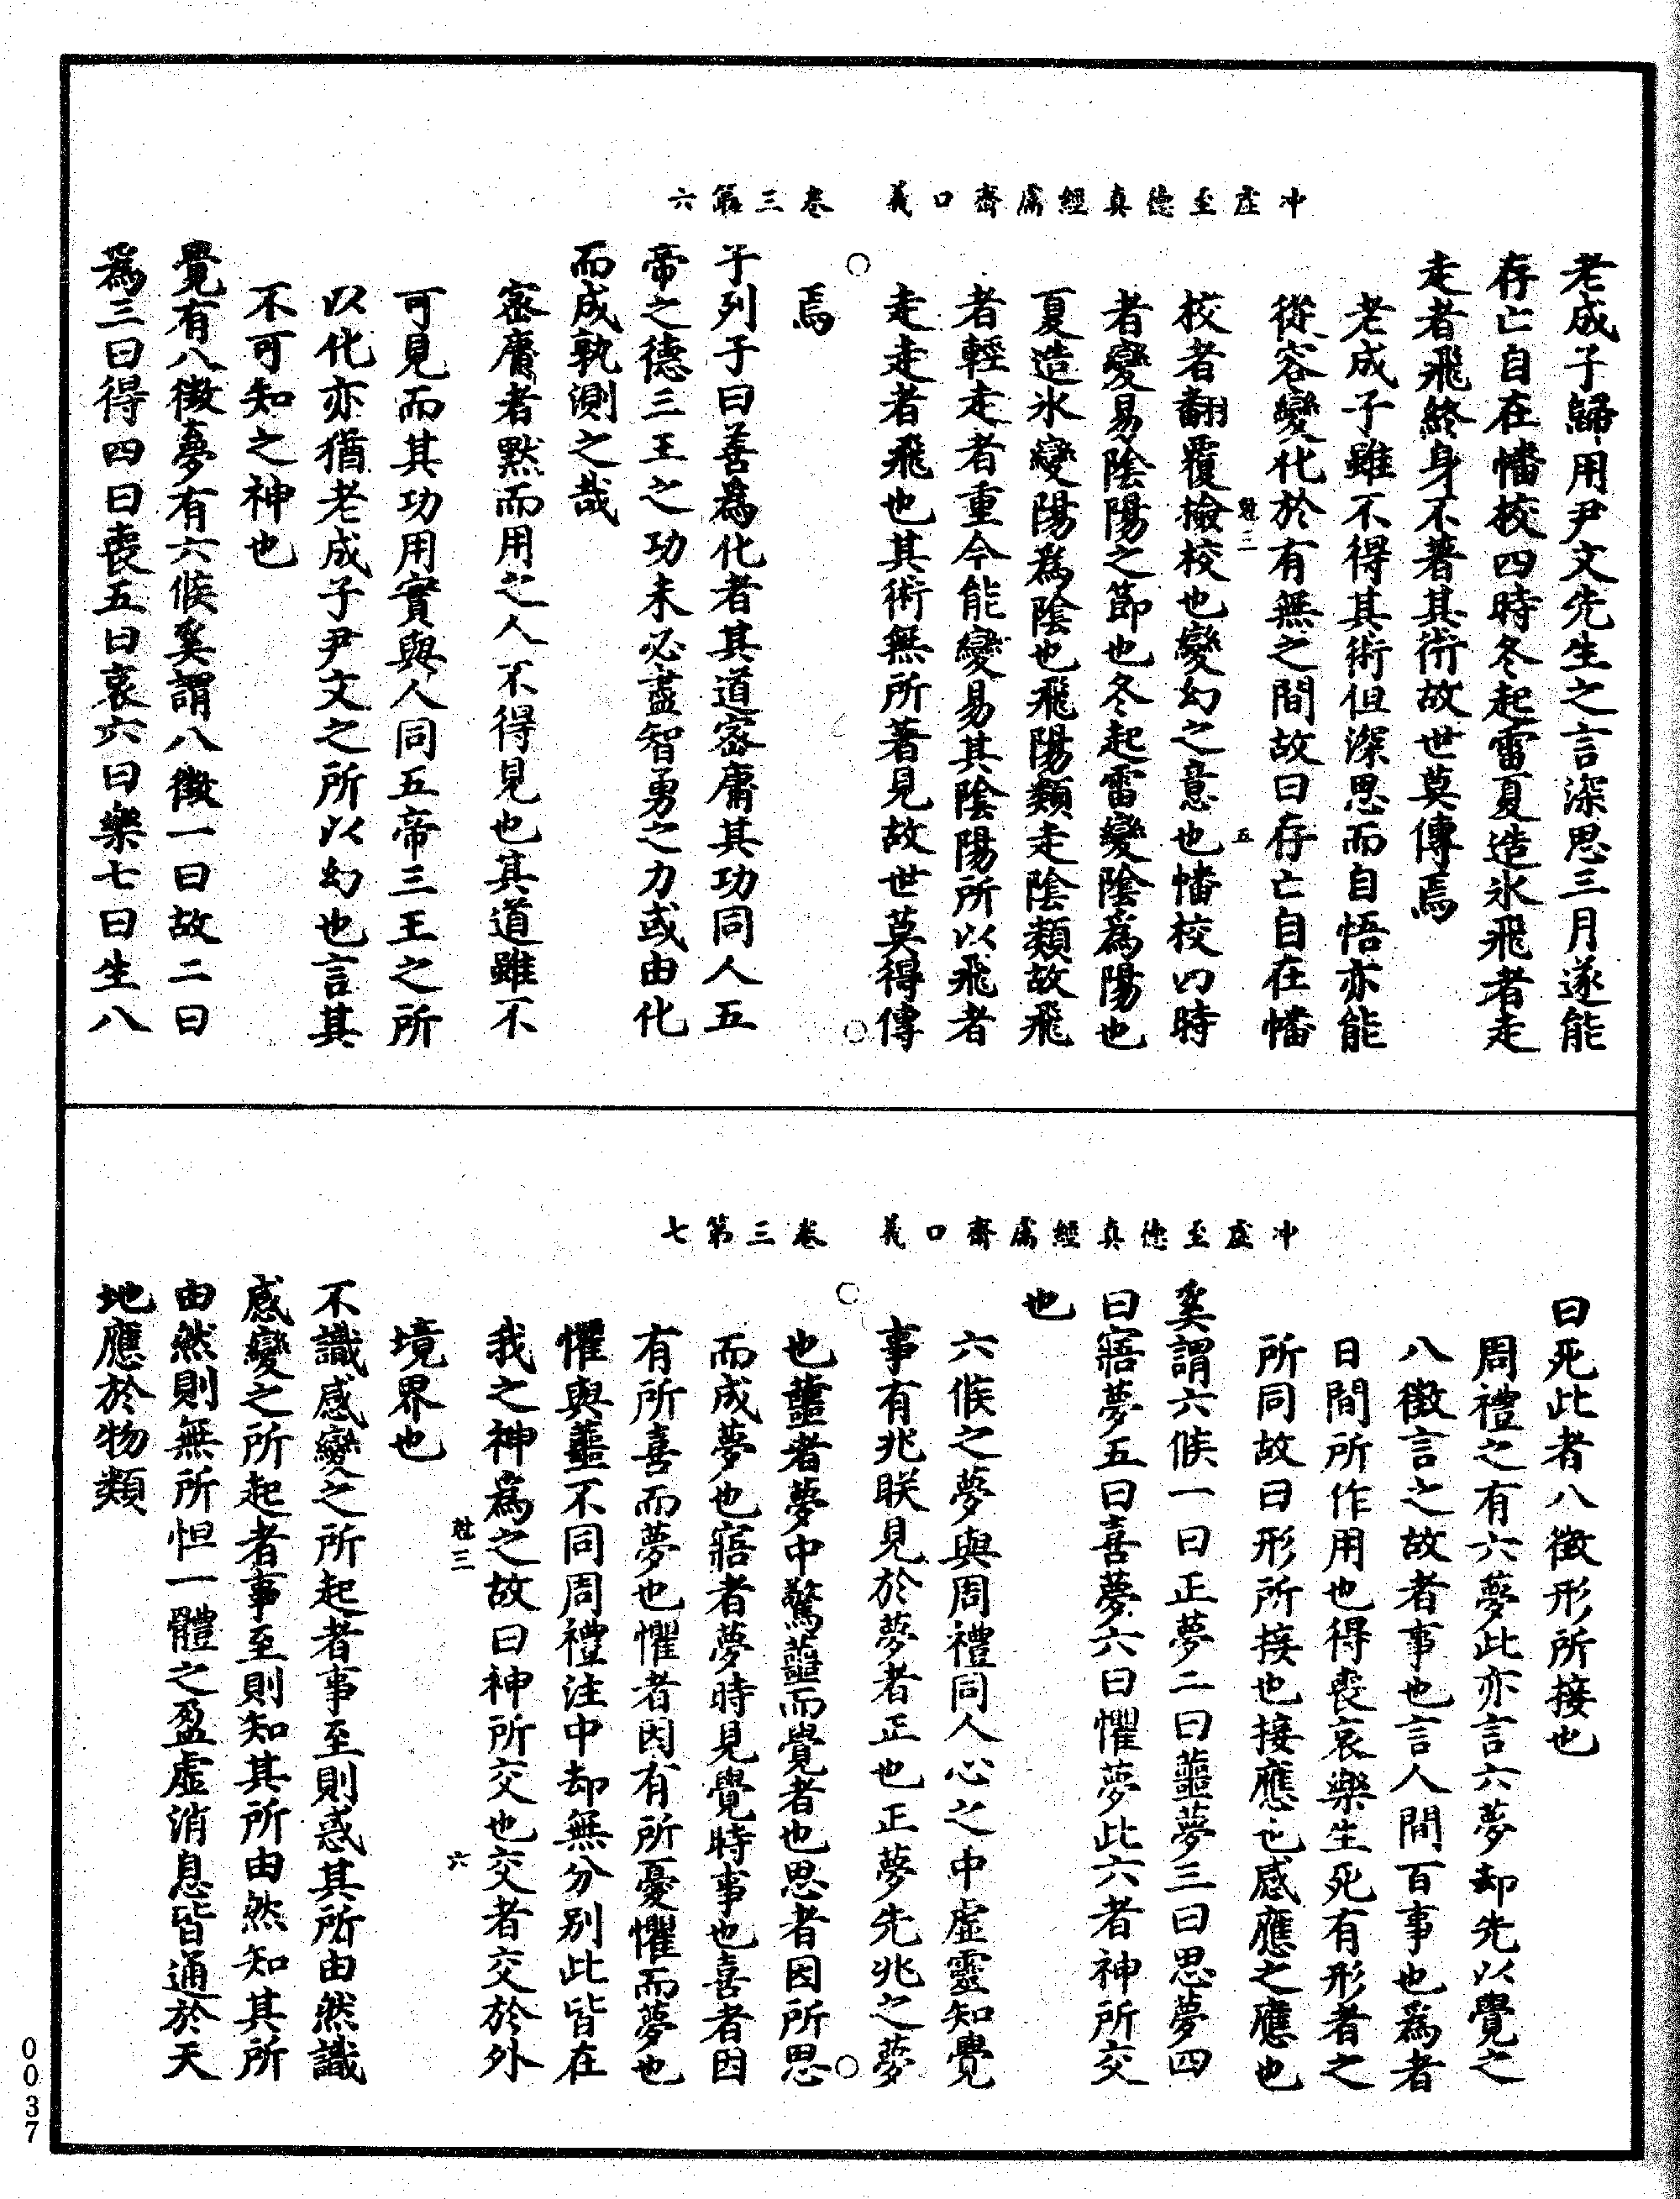 冲虛至德真經鬳齋口義 卷三第六
老成子歸用尹文先生之言深思三月遂能
存亡自在幡校四時冬起雷夏造氷飛者走
走者飛終身不著其術故世莫傳焉
老成子雖不得其術但深思而自悟亦能
從容變化於有無之間故曰存亡自在幡
尅三 五
校者翻覆撿校也變幻之意也幡校四時
者變易陰陽之節也冬起雷變陰為陽也
夏造氷變陽為陰也飛陽類走陰類故飛
者輕走者重今能變易其陰陽所以飛者
走走者飛也其術無所著見故世莫得傳
焉
子列子曰善為化者其道密庸其功同人五
帝之德三王之功未必盡智勇之力或由化
而成孰測之哉
密庸者默而用之人不得見也其道雖不
可見而其功用實與人同五帝三王之所
以化亦猶老成子尹文之所以幻也言其
不可知之神也
覺有八徵夢有六候奚謂八徵一曰故二曰
為三曰得四曰喪五曰哀六曰樂七曰生八
冲虛至德真經鬳齋口義 卷三第七
曰死此者八徵形所接也
周禮之有六夢此亦言六夢却先以覺之
八徵言之故者事也言人間百事也為者
日間所作用也得喪哀樂生死有形者之
所同故曰形所接也接應也感應之應也
奚謂六候一曰正夢二曰蘁夢三曰思夢四
曰寤夢五曰喜夢六曰懼夢此六者神所交
也
六候之夢與周禮同人心之中虛靈知覺
事有兆眹見於夢者正也正夢先兆之夢
也蘁者夢中驚蘁而覺者也思者因所思
而成夢也寤者夢時見覺時事也喜者因
有所喜而夢也懼者因有所憂懼而夢也
懼與蘁不同周禮注中却無分別此皆在
我之神為之故曰神所交也交者交於外
尅三 六
境界也
不識感變之所起者事至則惑其所由然識
感變之所起者事至則知其所由然知其所
由然則無所怛一體之盈虛消息皆通於天
地應於物類
0037